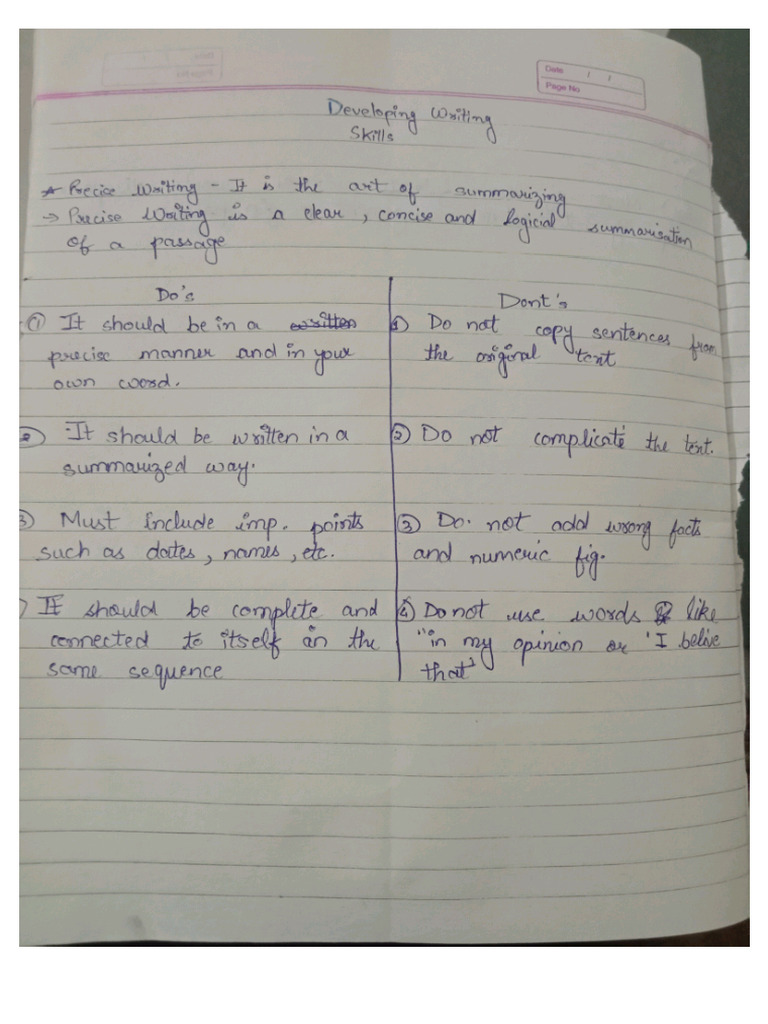 Date / /
Page No
Developing Writing
Skills
* Precise Writing - It is the art of summarizing
→ Precise Writing is a clear, concise and logicial summarisation
of a passage
Do's
① It should be in a written
precise manner and in your
own word.
② It should be written in a
summarized way.
3) Must include imp. points
such as dates, names, etc.
) It should be complete and
connected to itself in the
same sequence
Dont's
① Do not copy sentences from
the original text
② Do not complicate the text.
③ Do. not add wrong facts
and numeric fig.
④ Do not use words like
"in my opinion or 'I belive
that'